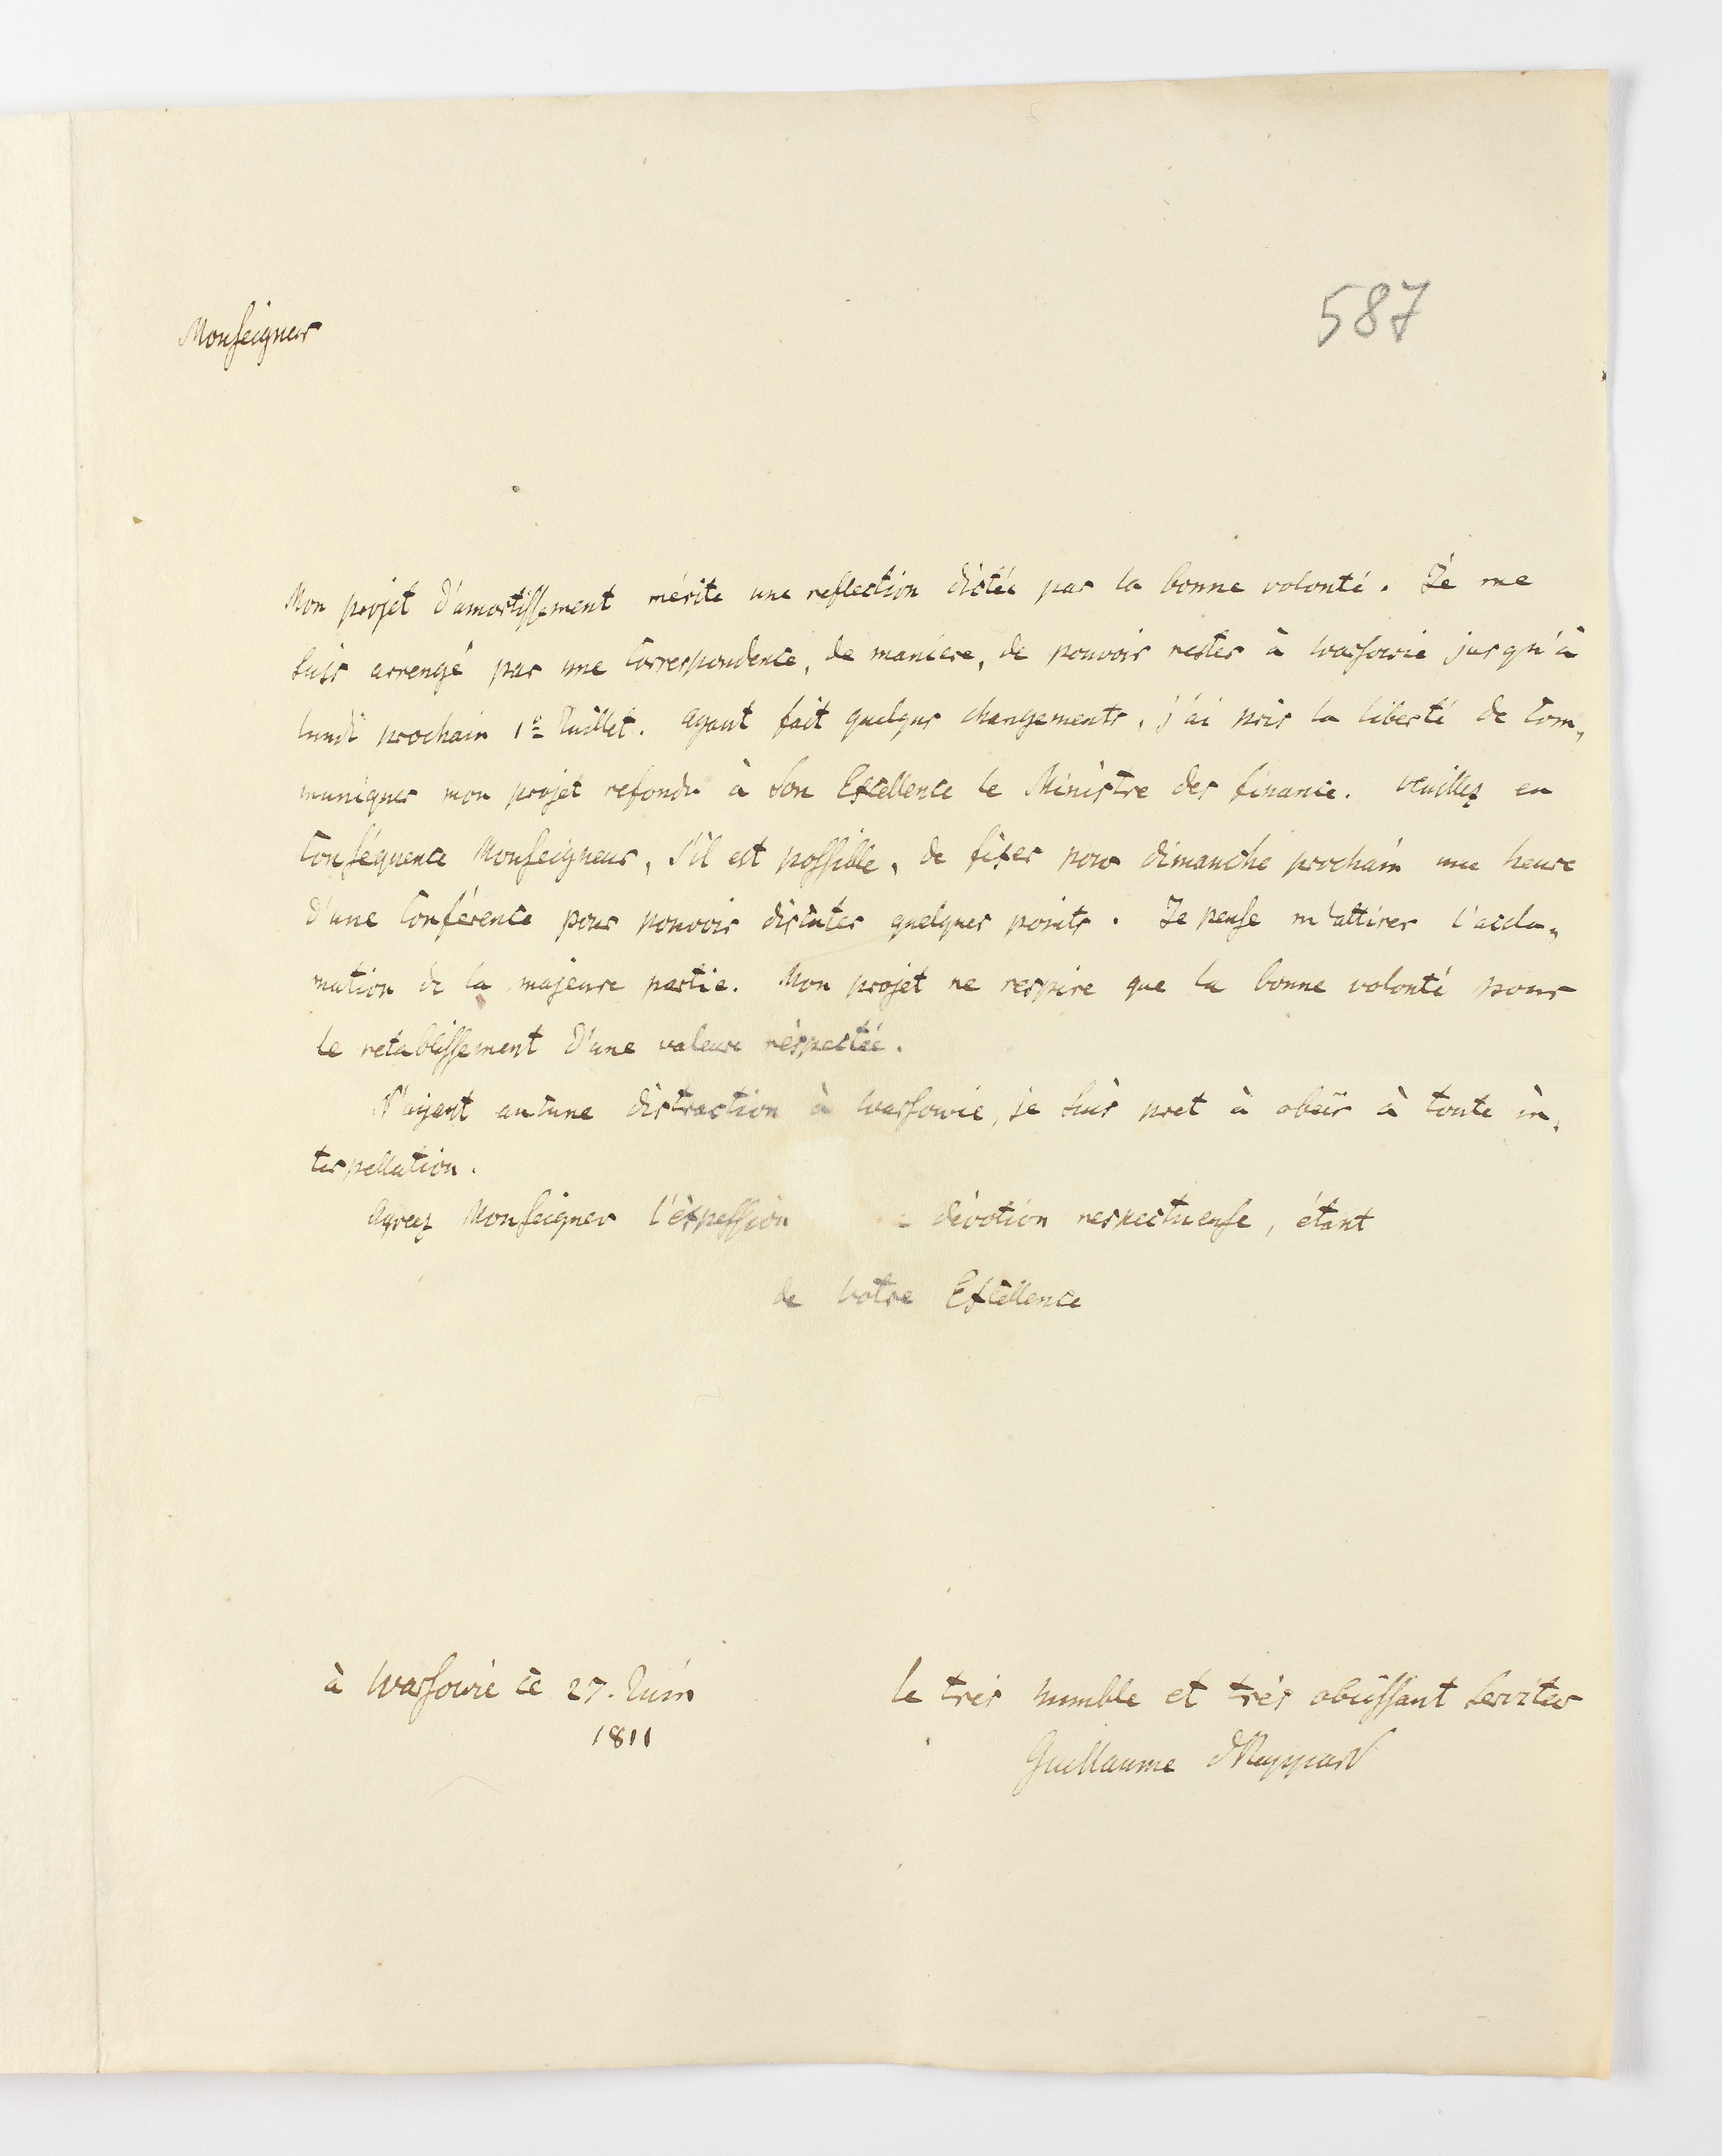 587
Monseigneur
Mon projet d'amortissement mérite une reflection dictée par la bonne volonté. Je me
suis arrengé par une correspondence, de maniere, de pouvoir rester à Warsowie jusqu'à
lundi prochain 1e Juillet. ayant fait quelqus changements, j'ai pris la liberté de com„
muniquer mon projet refondu à Son Excellence le Ministre des finance. veuillez en
conséquence Monseigneur, s'il est possible, de fixer pour dimanche prochain une heure
d'une conférence pour pouvoir discuter quelques points. Je pense m'attirer l'accla„
mation de la majeure partie. Mon projet ne respire que la bonne volonté pour
le retablissement d'une valeure réspectée.
N'aijant aucune distraction à Warsowie, je suis pret à obeïr à toute in„
terpellation.
Agreez Monseigneur l'éxpession dévotion respectueuse, étant
de Votre Excellence
à Warsowie ce 27. Juin
1811
le trés humble et trés obeissant Serviteur
Guillaume d'Rappard